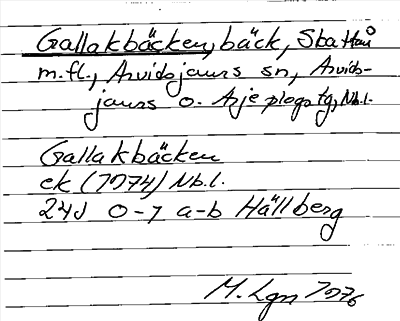 Gallakbäcken, bäck, Sbattnå
m.fl., Arvidsjaurs sn, Arvids-
jaurs o. Arjeplogs tg, Nb.l.
Gallakbäcken
ek (1974) Nb.l.
24J 0-1 a-b Hällberg
M. Lgn 1976